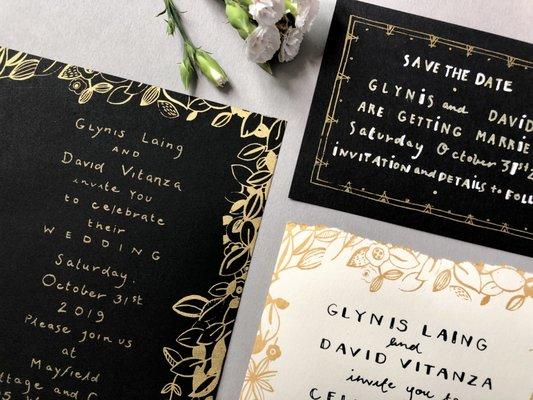 Glynis Laing
AND
David Vitanza
invite you
to celebrate
their
WEDDING
Saturday.
October 31st
2019
Please join us
at
Mayfield
ttage and
SAVE THE DATE
GLYNIS and DAVID
ARE GETTING MARRIE
Saturday October 31st
INVITATION and DETAILS to FOLL
GLYNIS LAING
and
DAVID VITANZA
invite you to
CEL